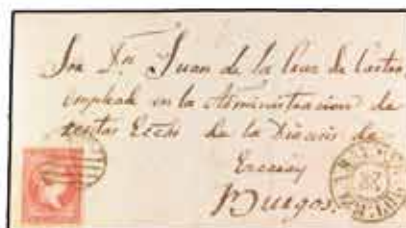 Sor Dn Juan de la Cruz de Castro
empleado en la Administracion de
rentas Eccas de la Diócesis de
Burgos.